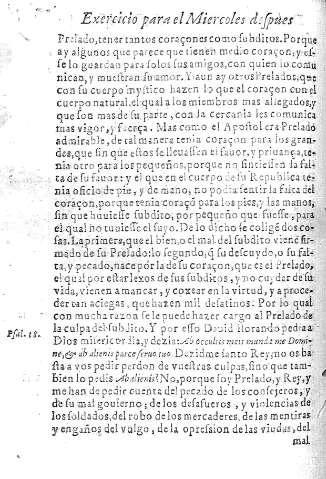 Exercicio para el Miercoles despues
Prelado, tener tantos coraçones como subditos. Porque
ay algunos que parece que tienen medio coraçon, y es-
se lo guardan para solos sus amigos, con quien lo comu
nican, y muestran su amor. Y aun ay otros Prelados, que
con su cuerpo mystico hazen lo que el coraçon con el
cuerpo natural, el qual a los miembros mas allegados, y
que son mas de su parte, con la cercania les comunica
mas vigor, y fuerça. Mas como el Apostol era Prelado
admirable, de tal manera tenia coraçon para los gran-
des, que sin que estos se lleuassen el fauor, y priuança, te
nia otro para los pequeños, porque no sintiessen la fal-
ta de su fauor: y el que en el cuerpo de su Republica te-
nia oficio de pie, y de mano, no podia sentir la falta del
coraçon, porque tenia coraçõ para los pies, y las manos,
sin que huuiesse subdito, por pequeño que fuesse, para
el qual no tuuiesse el suyo. De lo dicho se coligẽ dos co-
sas. La primera, que el bien, o el mal del subdito viene fir-
mado de su Prelado: lo segundo, q̃ su descuydo, o su fal-
ta, y pecado, nace por la de su coraçon, que es el Prelado,
el qual por estar lexos de sus subditos, y no cuydar de su
vida, vienen a mancar, y coxear en la virtud, y a proce-
der tan a ciegas, que hazen mil desatinos: Por lo qual
con mucha razon se le puede hazer cargo al Prelado de
la culpa del subdito. Y por esso Dauid llorando pedia a
Psal. 18.
Dios misericordia, y dezia: Ab occultis meis munda me Domi-
ne, & ab alienis parce seruo tuo. Dezidme santo Rey, no os ba
sta a vos pedir perdon de vuestras culpas, sino que tam-
bien lo pedis Ab alienis? No, porque soy Prelado, y Rey, y
me han de pedir cuenta del pecado de los consejeros, y
de su mal gouierno, de los desafueros, y violencias de
los soldados, del robo de los mercaderes, de las mentiras
y engaños del vulgo, de la opression de las viudas, del
mal